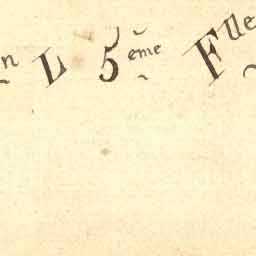 n L 5eme Flle